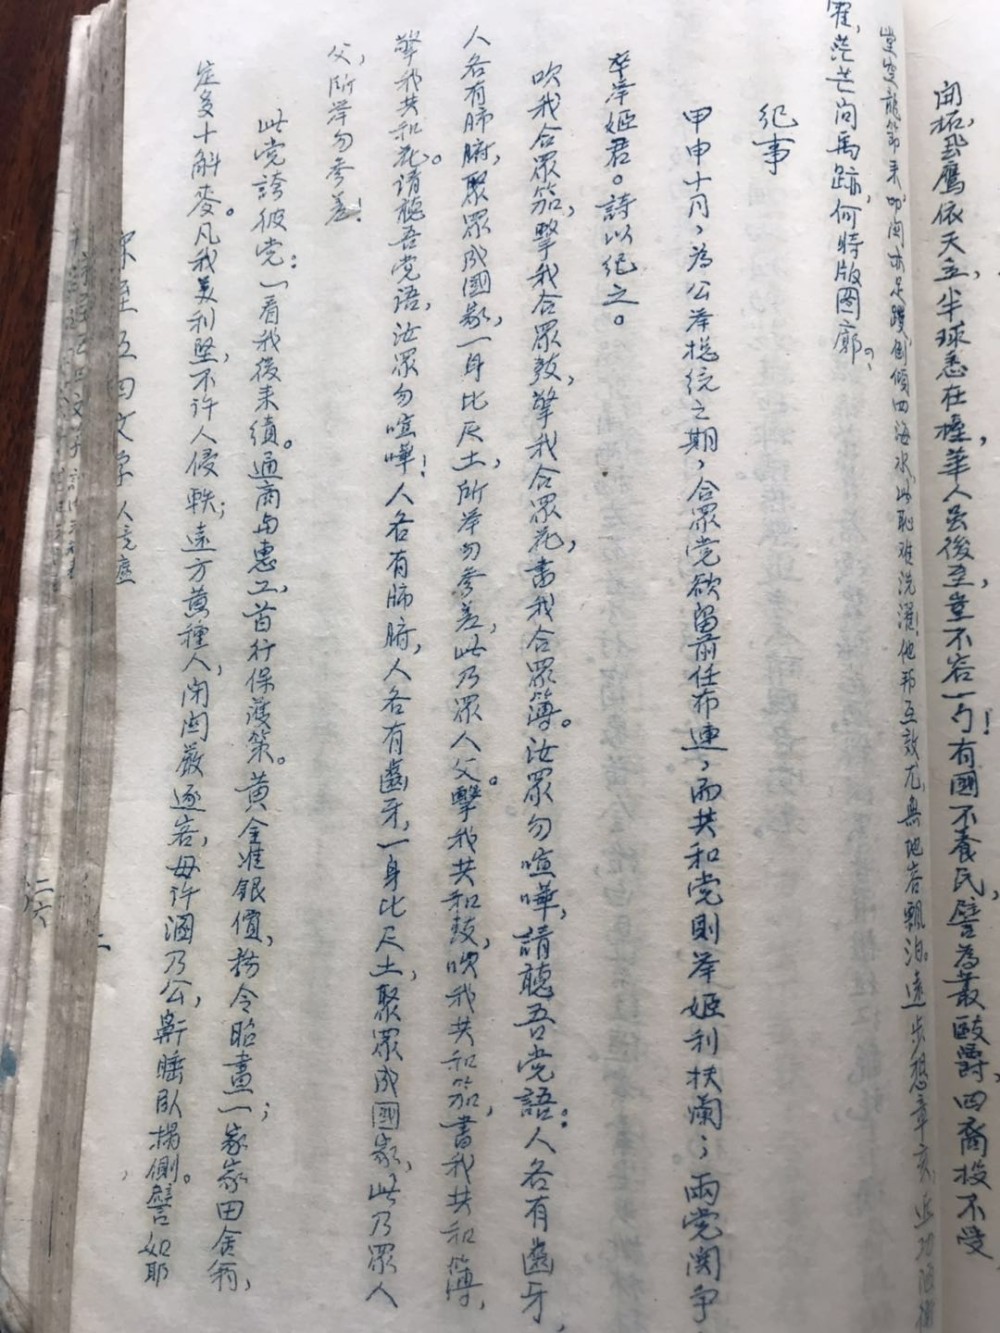 開拓。飛鷹依天立，半球悉在握，華人雖後至，豈不容一勺！有國不養民，譬為叢毆爵，四裔投不受
豈容龍節來，叩關亦足躩，倒傾四海水，此恥難洗濯！他邦互效尤，無地容飄泊。遠步想章亥，近功陋衛
霍，茫茫問禹跡，何時版圖廓。
紀事
甲申十月，為公举総统之期，合眾党欲留前任布連，而共和党則举姬利扶蘭；兩党閧争，
卒举姬君。詩以紀之。
吹我合眾笳，擊我合眾鼓，擎我合眾花，書我合眾簿。汝眾勿喧嘩，請聽吾党語。人各有齒牙，
人各有肺腑，聚眾成國家，一身比尺土，所举勿參差，此乃眾人父。擊我共和鼓，吹我共和笳，書我共和簿，
擎我共和花。請聽吾党語，汝眾勿喧嘩！人各有肺腑，人各有齒牙，一身比尺土，聚眾成國家，此乃眾人
父，所举勿參差！
此党誇彼党：一看我後来績。通商与惠工，首行保護策。黃金准銀價，務令昭畫一；家家田舍翁，
定多十斛麥。凡我美利堅，不許人侵軼；遠方黃種人，閉關嚴逐客，毋許溷乃公，鼾睡臥榻側。譬如耶
二六